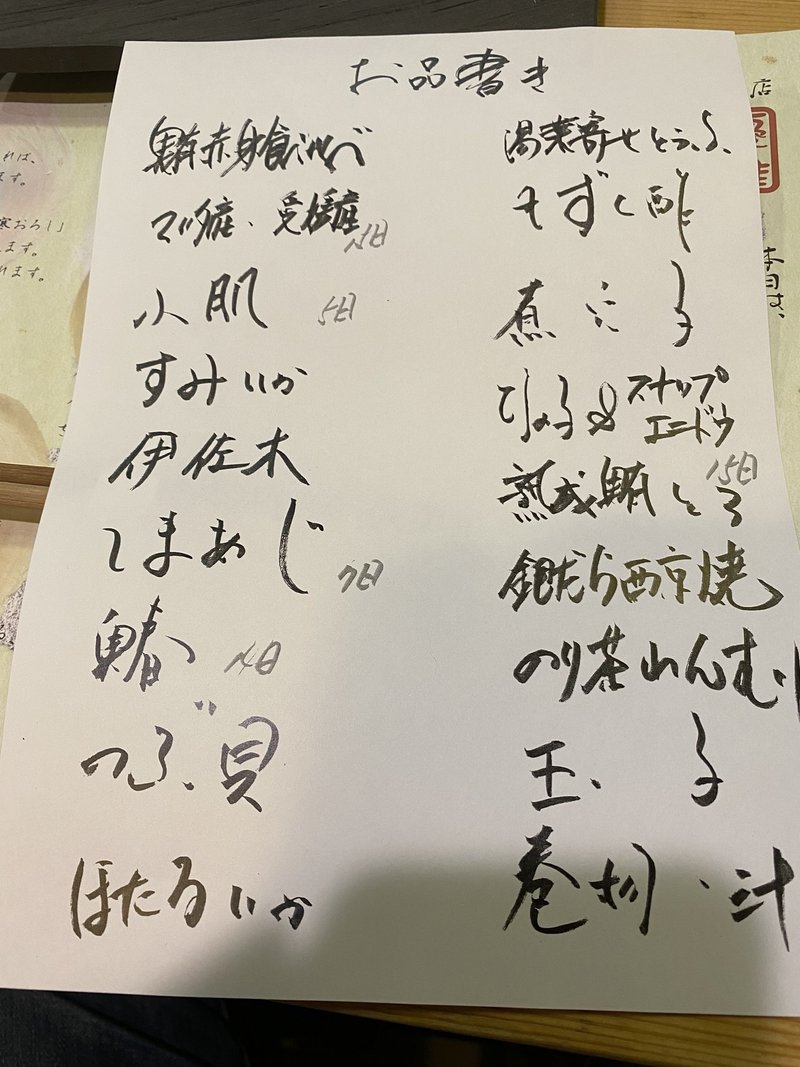 お品書き
鮪赤身食べ比べ
小肌 5日
すみいか
伊佐木
しまあじ 7日
鰆 14日
つぶ貝
ほたるいか
湯葉寄せとうふ
もずく酢
煮穴子
竹の子&スナップ
エンドウ
熟成鮪とろ 15日
銀だら西京焼
のり茶わんむし
玉子
巻物・汁
れば、
ます。
寒おろし」
ます。
れます。
店
本日は、